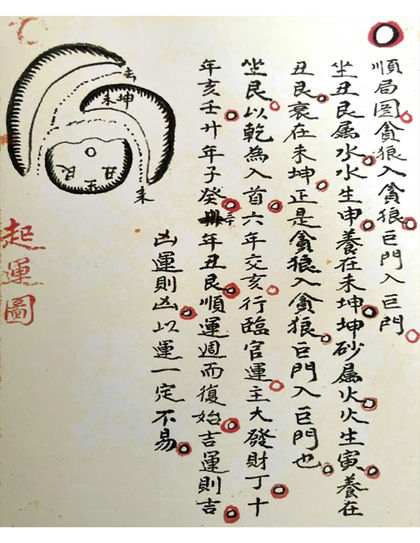 順局圖貪狼入貪狼巨門入巨門
坐丑艮属水水生申養在未坤坤砂属火火生寅養在
丑艮衰在未坤正是貪狼入貪狼巨門入巨門也
坐艮以乾為入首六年交亥行臨官運主大發財丁十
年亥壬廿年子癸年丑艮順運週而復始吉運則吉
凶運則凶以運一定不易
起運圖
去
坤未
艮丑
来